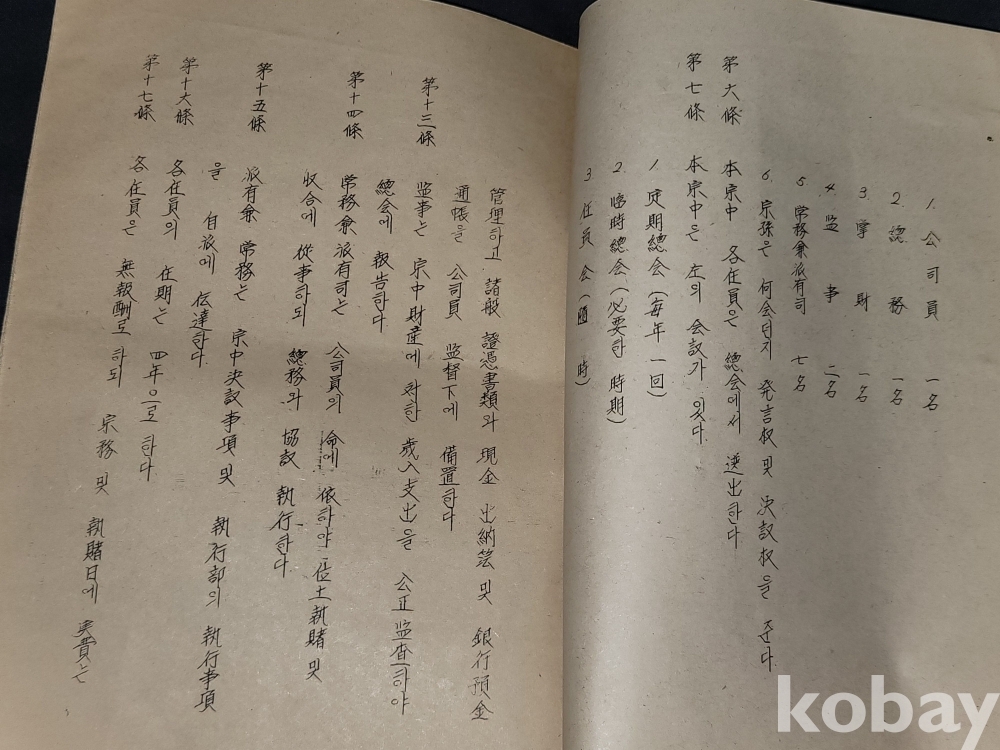 1. 公司員 一名
2. 總務 一名
3. 掌財 一名
4. 监事 二名
5. 常務兼派有司 七名
6. 宗孫은 何会던지 発言权 및 决議权을 준다
第六條 本宗中 各任員은 總会에서 選出한다
第七條 本宗中은 左의 会議가 잇다
1. 定期總会(每年一回)
2. 臨時總会(必要한 時期)
3. 任員会(随時)
管理하고 諸般 證憑書類와 現金 出納簿 및 銀行預金
通帳을 公司員 监督下에 備置한다
第十三條 监事는 宗中財産에 対한 歲入支出을 公正监査하야
總会에 報告한다
第十四條 常務兼派有司는 公司員의 命에 依하야 位土執賭 및
收合에 從事하되 總務와 協議 執行한다
第十五條 派有兼常務는 宗中决議事項 및 執行部의 執行事項
을 自派에 伝達한다
第十六條 各任員의 任期는 四年으로 한다
第十七條 各任員은 無報酬로 하되 宗務 및 執賭日에 実費는
kobay